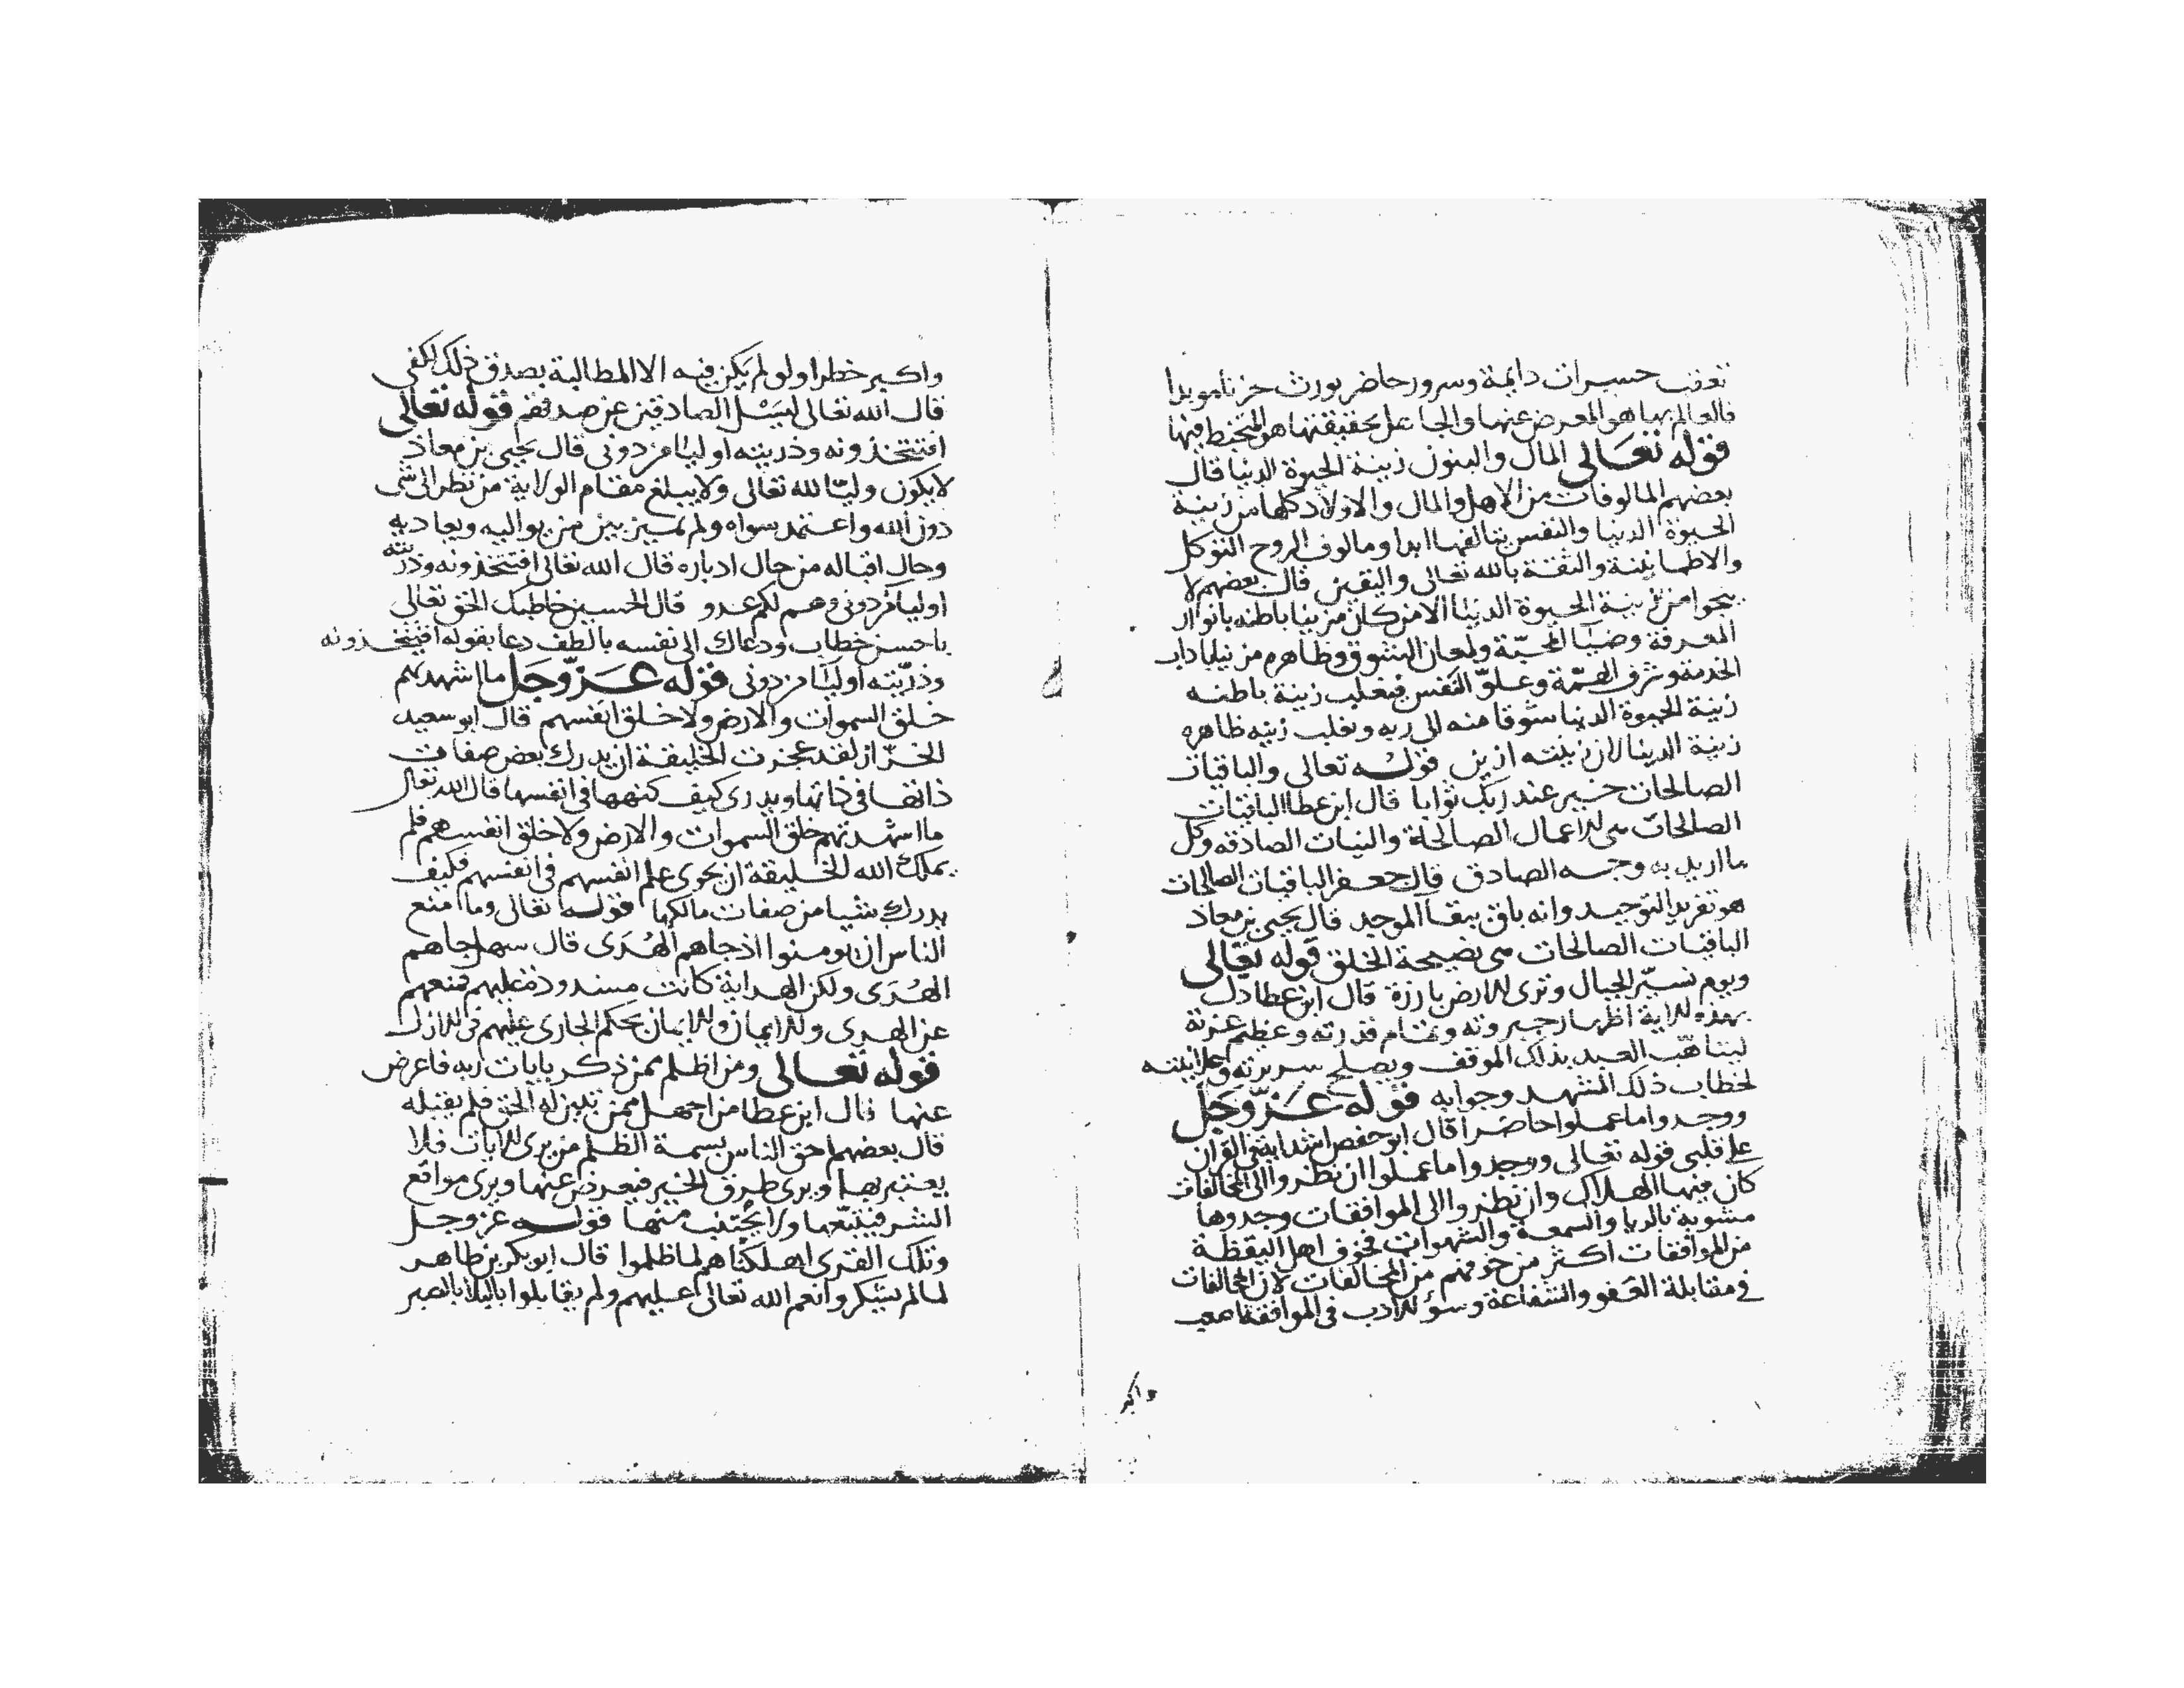 تعقب حسرات دايمة وسرور حاضر يورث حزنا مويدا
فالعالم بها هو المعرض عنها والجاهل بحقيقتها هو المتخبط فيها
قوله تعالى المال والبنون زينة الحيوة الدنيا قال
بعضهم المالوفات من الاهل والمال والاولاد كلها من زينة
الحيوة الدنيا والنفس يتالفها ابدا ومالوف الروح التوكل
والاطمانينة والثقة بالله تعالى واليقين قال بعضهم لا
ينجوا من زينة الحيوة الدنيا الا من كان مزينا باطنه بانوار
المعرفة وضيا المحبة ولمعان الشوق وظاهره مزينا باداب
الخدمة وشرف الهمة وعلو النفس فيغلب زينة باطنه
زينة الحيوة الدنيا شوقا منه الى ربه وتغلب زينة ظاهره
زينة الدنيا لان زينته ازين قوله تعالى والباقيات
الصالحات خير عند ربك ثوابا قال ابن عطا الباقيات
الصالحات هى الاعمال الصالحة والنيات الصادقه وكل
ما اريد به وجه الصادق قال جعفر الباقيات الصالحات
هو تفريد التوحيد وانه باق ببقا الموحد قال يحيى بن معاذ
الباقيات الصالحات هى نصيحة الخلق قوله تعالى
ويوم نسير الجبال وترى الارض بارزة قال ابن عطا دل
بهذه الاية اظهار جبروته وتمام قدرته وعظم عزته
ليتاهب العبد بذلك الموقف ويصلح سريرته وعلانيته
لخطاب ذلك المشهد وجوابه قوله عز وجل
ووجدوا ما عملوا حاضرا قال ابو حفص اشد اية فى القران
على قلبى قوله تعالى ووجدوا ما عملوا ان نظروا الى المخالفات
كان فيها الهلاك وان نظروا الى الموافقات وجدوها
مشوبة بالريا والسمعة والشهوات فخوف اهل اليقظة
من الموافقات اكثر من خوفهم من المخالفات لان المخالفات
فى مقابلة العفو والشفاعة وسؤ الادب فى الموافقة اصعب
واكبر
واكبر خطرا ولو لم يكن فيه الا المطالبة بصدق ذلك لكفى
قال الله تعالى ليسئل الصادقين عن صدقهم قوله تعالى
افتتخذونه وذريته اوليا من دونى قال يحيى بن معاذ
لا يكون وليا لله تعالى ولا يبلغ مقام الولاية من نظر الى شى
دون الله واعتمد سواه ولم يميز بين من يواليه ويعاديه
وحال اقباله من حال ادباره قال الله تعالى افتتخذونه وذريته
اوليا من دونى وهم لكم عدو قال الحسين خاطبك الحق تعالى
باحسن خطاب ودعاك الى نفسه بالطف دعا بقوله افتتخذونه
وذريته اوليا من دونى قوله عز وجل ما اشهدتهم
خلق السموات والارض ولا خلق انفسهم قال ابو سعيد
الخراز لقد عجزت الخليقة ان يدرك بعض صفات
ذاتها فى ذاتها ويدرى كيف كنهها فى انفسها قال الله تعالى
ما اشهدتهم خلق السموات والارض ولا خلق انفسهم فلم
يملك الله الخليقة ان يحوى علم انفسهم فى انفسهم فكيف
يدرك شيا من صفات مالكها قوله تعالى وما منع
الناس ان يومنوا اذ جاهم الهدى قال سهل جاهم
الهدى ولكن الهداية كانت مسدودة عليهم فمنعهم
عن الهدى والايمان والايمان بحكم الجارى عليهم فى الازل
قوله تعالى ومن اظلم ممن ذكر بايات ربه فاعرض
عنها قال ابن عطا من اجهل ممن تبين له الحق فلم يقبله
قال بعضهم احق الناس بسمة الظلم من يرى الايات فلا
يعتبر بها ويرى طرق الخير فيعرض عنها ويرى مواقع
الشر فيتبعها ولا يجتنب منها قوله عز وجل
وتلك القرى اهلكناهم لما ظلموا قال ابو بكر بن طاهر
لما لم يشكروا نعم الله تعالى عليهم ولم يقابلوا بالبلا بالصبر